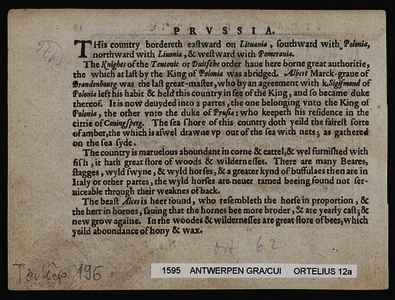 P R V S S I A.
THis country bordereth eastward on Lituania, southward with Polonia,
northward with Liuonia, & westward with Pomerania.
The Knights of the Teutonic or Duitsche order haue here borne great authoritie,
the which at last by the King of Polonia was abridged. Albert Marck-graue of
Brandenbourg was the last great-maister, who by an agreement with k. Sigismond of
Polonia left his habit & held this country in fee of the King, and so became duke
thereof. It is now deuyded into 2 partes, the one belonging vnto the King of
Polonia, the other vnto the duke of Prussia; who keepeth his residence in the
cittie of Coningsperg. The sea shore of this country doth yeild the fairest sorte
of amber, the which is aswel drawne vp out of the sea with nets, as gathered
on the sea syde.
The country is maruelous aboundant in corne & cattel, & wel furnished with
fish, it hath great store of woods & wildernesses. There are many Beares,
stagges, wyld swyne, & wyld horses, & a greater kynd of buffulaes then are in
Italy or other partes, the wyld horses are neuer tamed beeing found not ser-
uiceable through their weaknes of back.
The beast Alces is heer found, who resembleth the horse in proportion, &
the hert in hornes, sauing that the hornes bee more broder, & are yearly cast; &
new grow againe. In the woodes & wildernesses are great store of bees, which
yeild aboondance of hony & wax.
62
196
1595 ANTWERPEN GRA/CUI ORTELIUS 12a